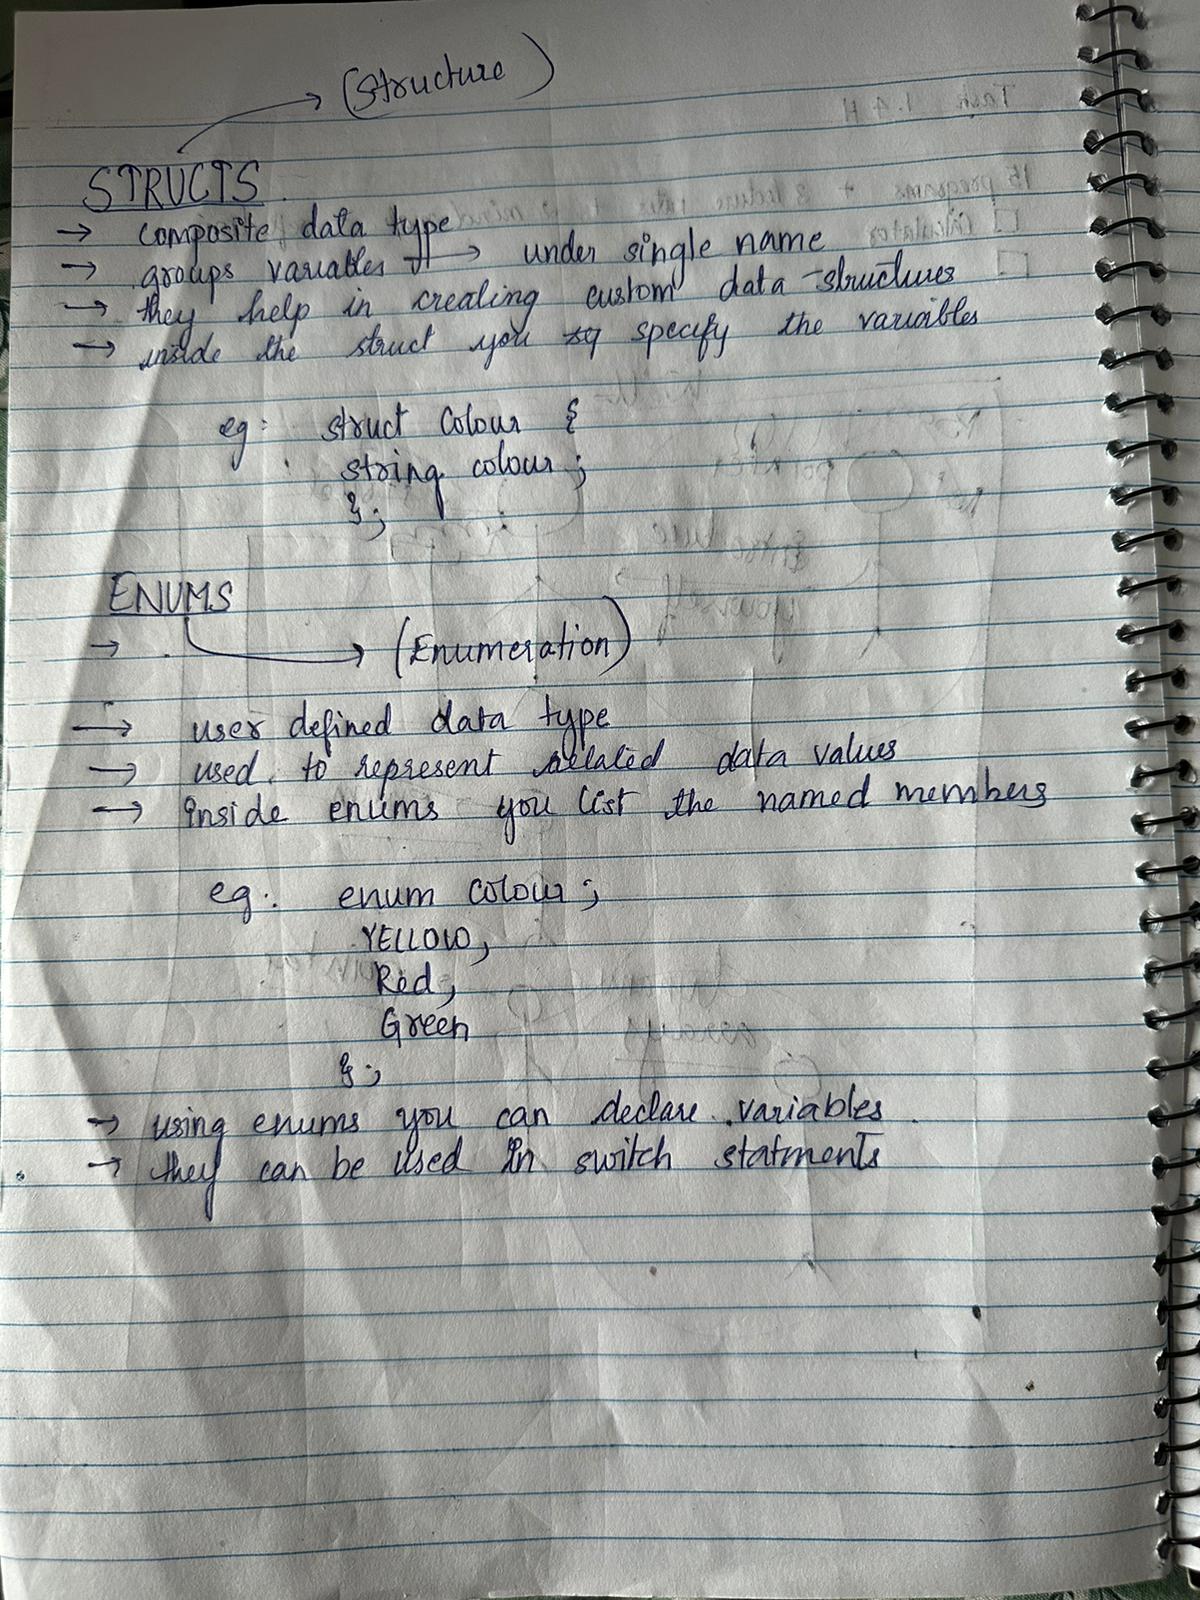 (Structure)
STRUCTS
→ composite data type
→ groups variables → under single name
→ they help in creating custom data structures
→ inside the struct you specify the variables
eg: struct Colour {
string colour;
};
ENUMS
→ (Enumeration)
→ user defined data type
→ used to represent related data values
→ Inside enums you list the named members
eg: enum colour;
YELLOW,
Red,
Green
};
→ using enums you can declare variables
→ they can be used in switch statments